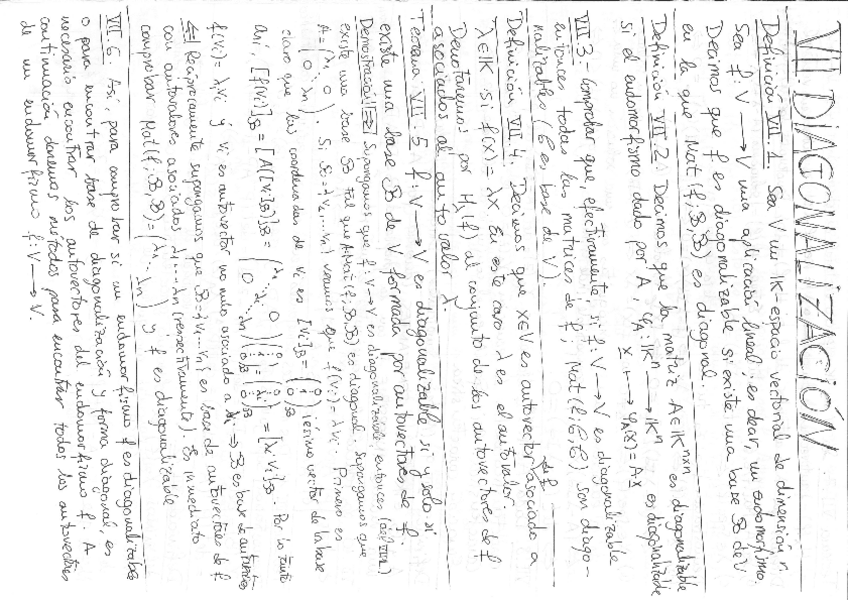 VII. DIAGONALIZACIÓN
Definición VII.1. Sea V un IK-espacio vectorial de dimensión n.
Sea f: V → V una aplicación lineal; es decir, un endomorfismo.
Decimos que f es diagonalizable si existe una base B de V
en la que Mat(f; B, B) es diagonal.
Definición VII.2. Decimos que la matriz A ∈ IK^{n×n} es diagonalizable
si el endomorfismo dado por A, φ_A: IK^n → IK^n es diagonalizable
x ↦ φ_A(x) = Ax
VII.3 - Comprobar que, efectivamente, si f: V → V es diagonalizable
entonces todas las matrices de f, Mat(f; G, G) son diago-
nalizables (G es base de V).
Definición VII.4. Decimos que x∈V es autovector asociado a
λ∈IK si f(x) = λx. En este caso λ es el autovalor
Denotaremos por H_λ(f) al conjunto de los autovectores de f
asociados al autovalor λ.
Teorema VII.5 f: V → V es diagonalizable si y solo si
existe una base B de V formada por autovectores de f.
Demostración: ⇒ Supongamos que f: V → V es diagonalizable, entonces
existe una base B tal que A = Mat(f; B, B) es diagonal. Supongamos que
A = (λ1 0 ⋱ 0 λn). Si B = {v1, ..., vn} veamos que f(vi) = λivi. Primero es
claro que las coordenadas de vi es [vi]_B = (0 ⋮ 1 ⋮ 0)_B i-ésimo vector de la base
Así [f(vi)]_B = [A([vi]_B)]_B = [λivi]_B. Por lo tanto
f(vi) = λivi y vi es autovector no nulo asociado a λi ⇒ B es base de autovectores
⇐ Recíprocamente supongamos que B = {v1, ..., vn} es base de autovectores de f
con autovalores asociados λ1, ..., λn (respectivamente). Es inmediato
comprobar Mat(f; B, B) = (λ1 ⋱ λn) y f es diagonalizable
VII.6 Así, para comprobar si un endomorfismo f es diagonalizable
o para encontrar base de diagonalización y forma diagonal, es
necesario encontrar los autovectores del endomorfismo f. A
continuación daremos métodos para encontrar todos los autovectores
de un endomorfismo f: V → V.